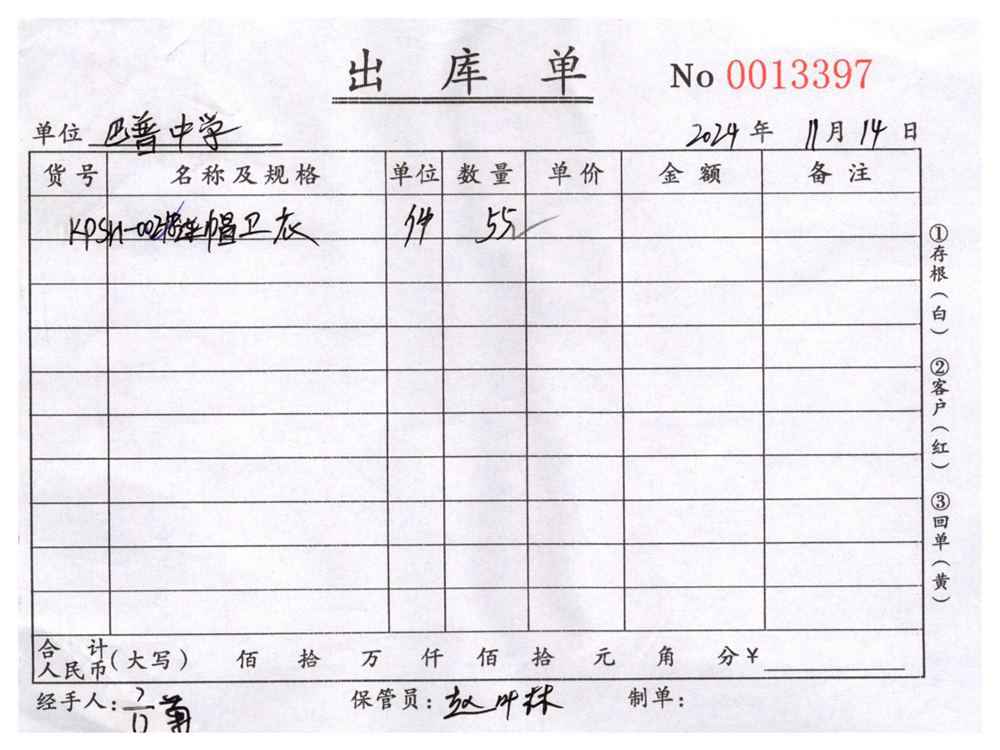 出库单
No 0013397
单位 巴普中学 2024 年 11 月 14 日
货号 名称及规格 单位 数量 单价 金额 备注
KPSH-002 连帽卫衣 件 55
①存根(白)
②客户(红)
③回单(黄)
合计人民币(大写) 佰 拾 万 仟 佰 拾 元 角 分 ¥
经手人: 保管员: 赵叶林 制单: